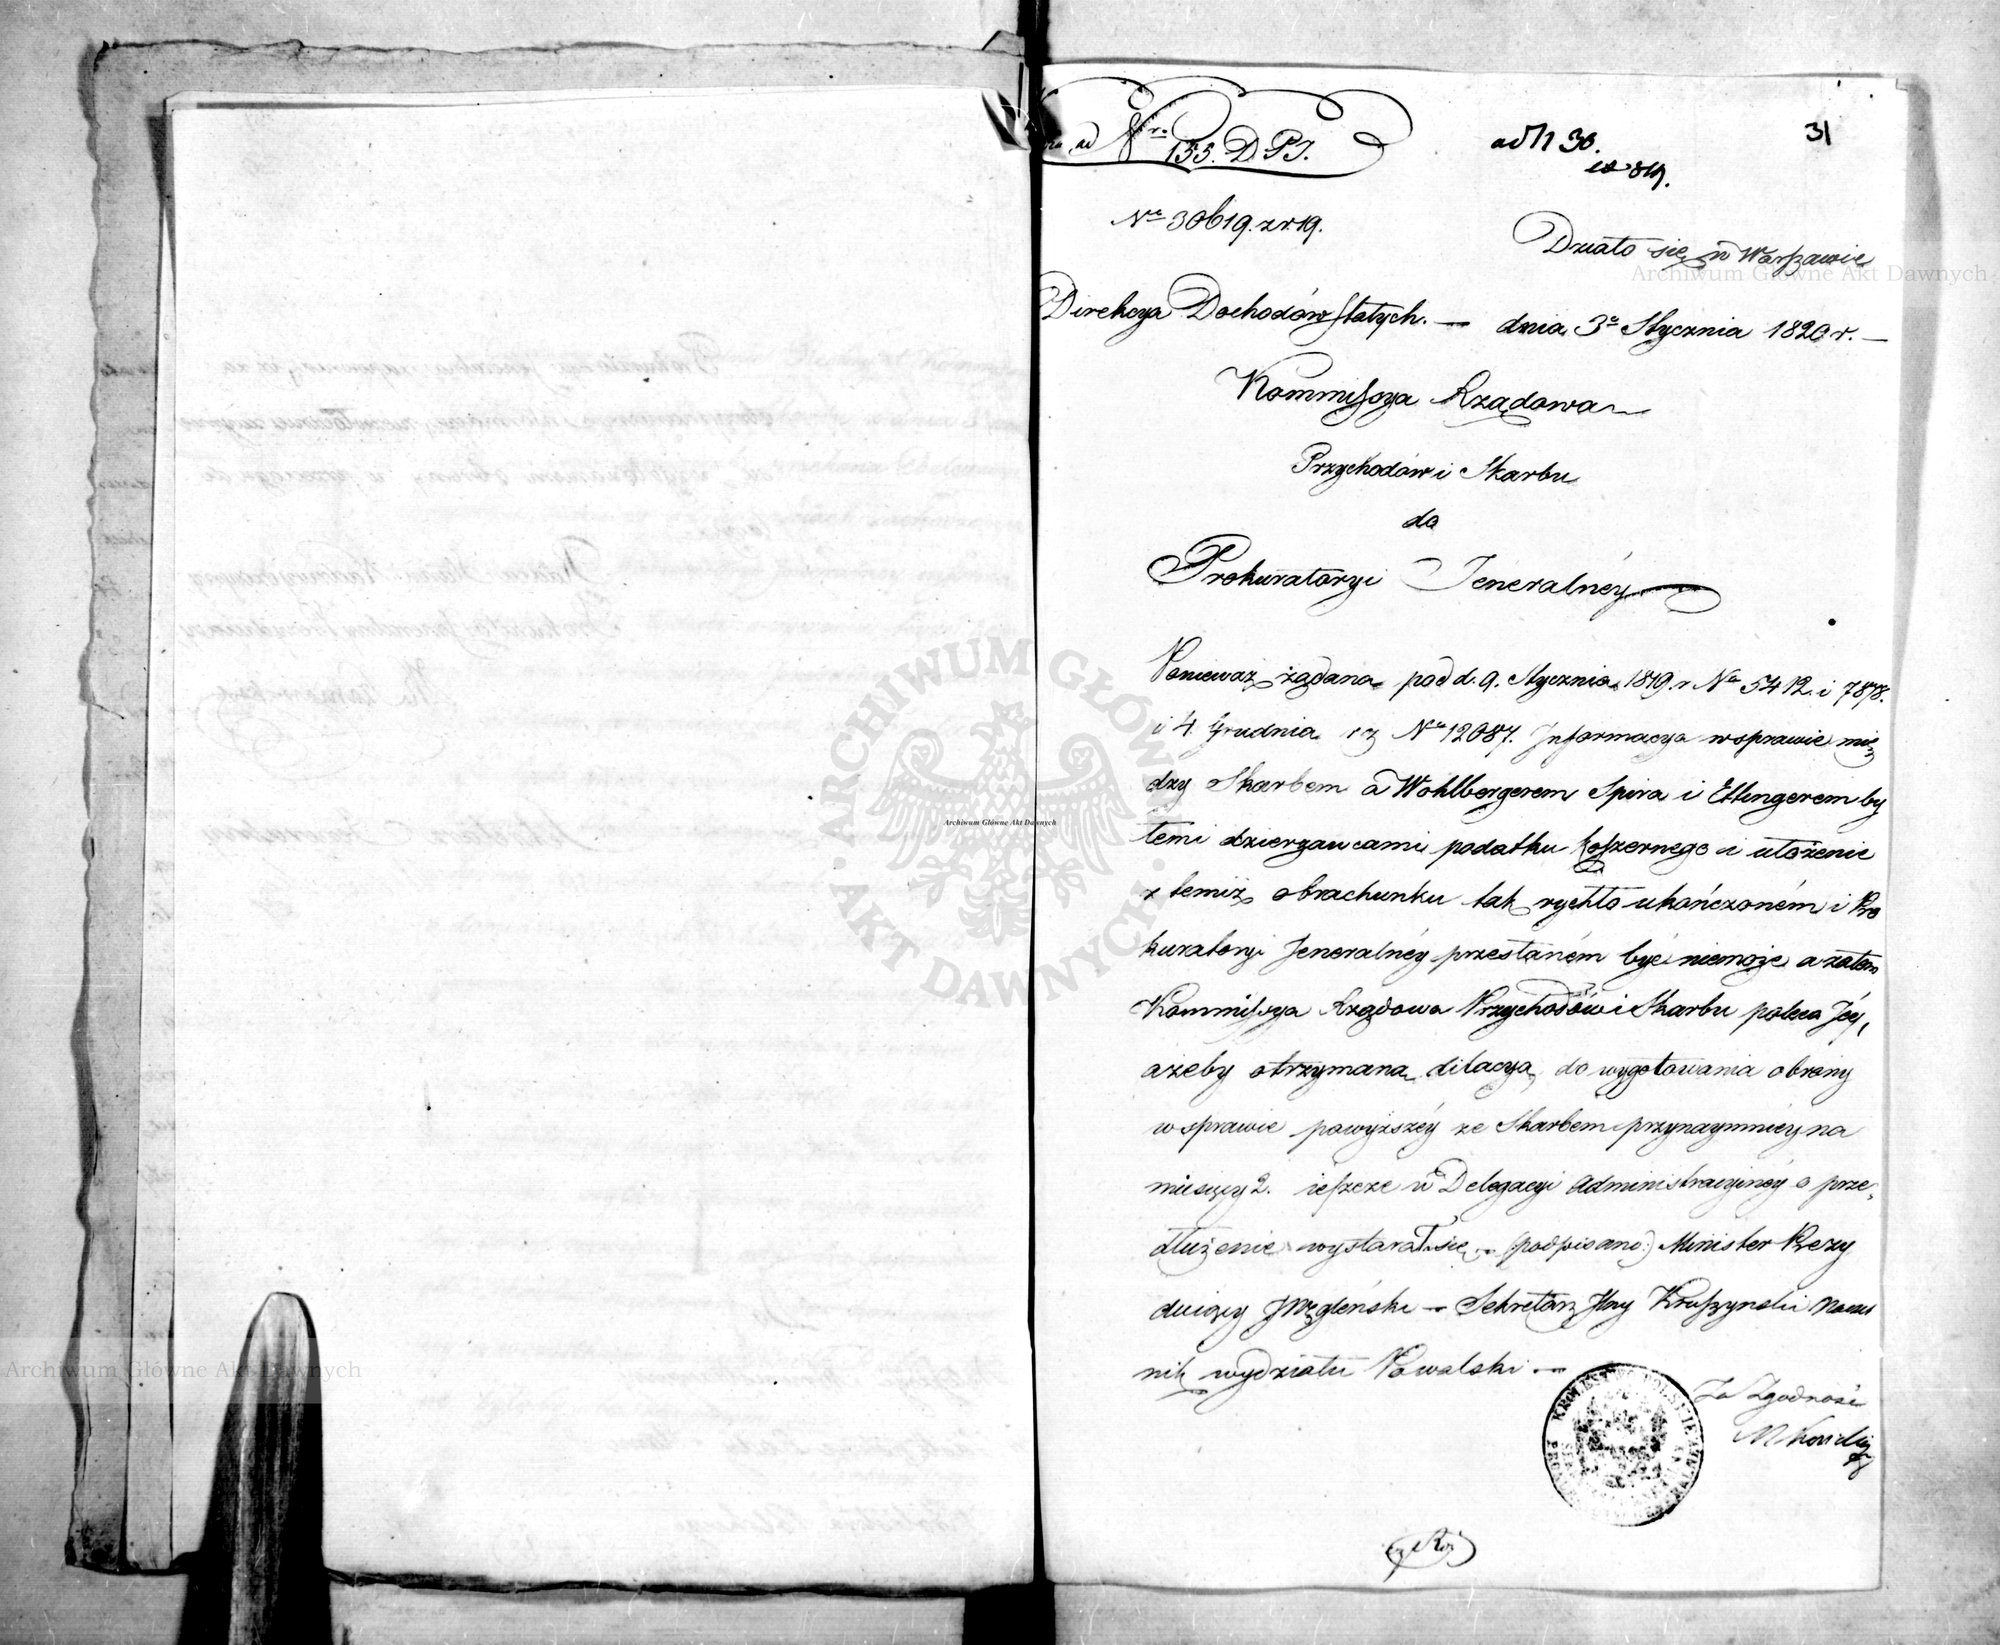 ad Nro
155. D. P. J.
ad N 30.
ex 819.
31
Nro 30619. z r. 19.
Działo się w Warszawie
Direkcya Dochodów stałych. — dnia 3o Stycznia 1820 r. —
Kommissya Rządowa
Przychodów i Skarbu
do
Prokuratoryi Jeneralnéy
Ponieważ żądana pod d. 9. Stycznia 1819. r Nro 5412. i 7878.
i 4 Grudnia Nro 12087. Informacya w sprawie mię
dzy Skarbem a Wohlbergerem Spira i Ettingerem by
łemi dzierzawcami podatku koszernego i ułożenie
z temiż obrachunku tak rychło ukończoném i Pro
kuratoryi Jeneralnéy przesłaném być niemoże a zatem
Kommissya Rządowa Przychodów i Skarbu poleca Jéy,
ażeby otrzymana dilacya do wygotowania obrony
w sprawie powyższéy ze Skarbem przynaymniéy na
miesięcy 2. ieszcze w Delegacyi Administracyinéy o prze,
dłużenie wystarał się — (podpisano:) Minister Prezy
duiący J Węgleński — Sekretarz Jlny Kruszynski Naczel
nik wydziału Kowalski —
Za Zgodność
KROLESTWO POLSKIE
Archiwum Główne Akt Dawnych
ARCHIWUM GŁÓWNE AKT DAWNYCH
Archiwum Główne Akt Dawnych
Archiwum Główne Akt Dawnych